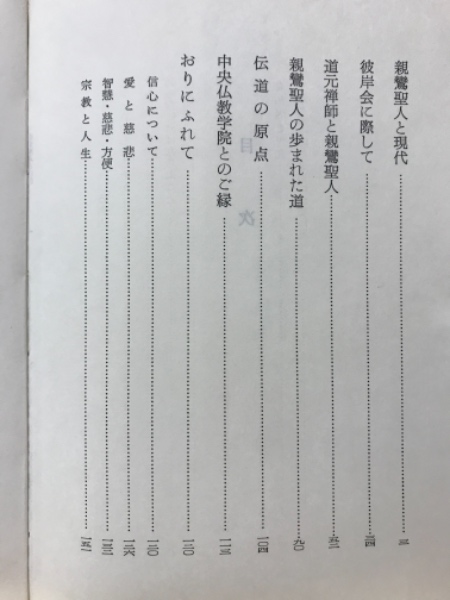 親鸞聖人と現代 三
彼岸会に際して 三四
道元禅師と親鸞聖人 五二
親鸞聖人の歩まれた道 九〇
伝道の原点 一〇四
中央仏教学院とのご縁 一一三
おりにふれて 一三〇
信心について 一三〇
愛と慈悲 一三六
智慧・慈悲・方便
宗教と人生 一五一
目次